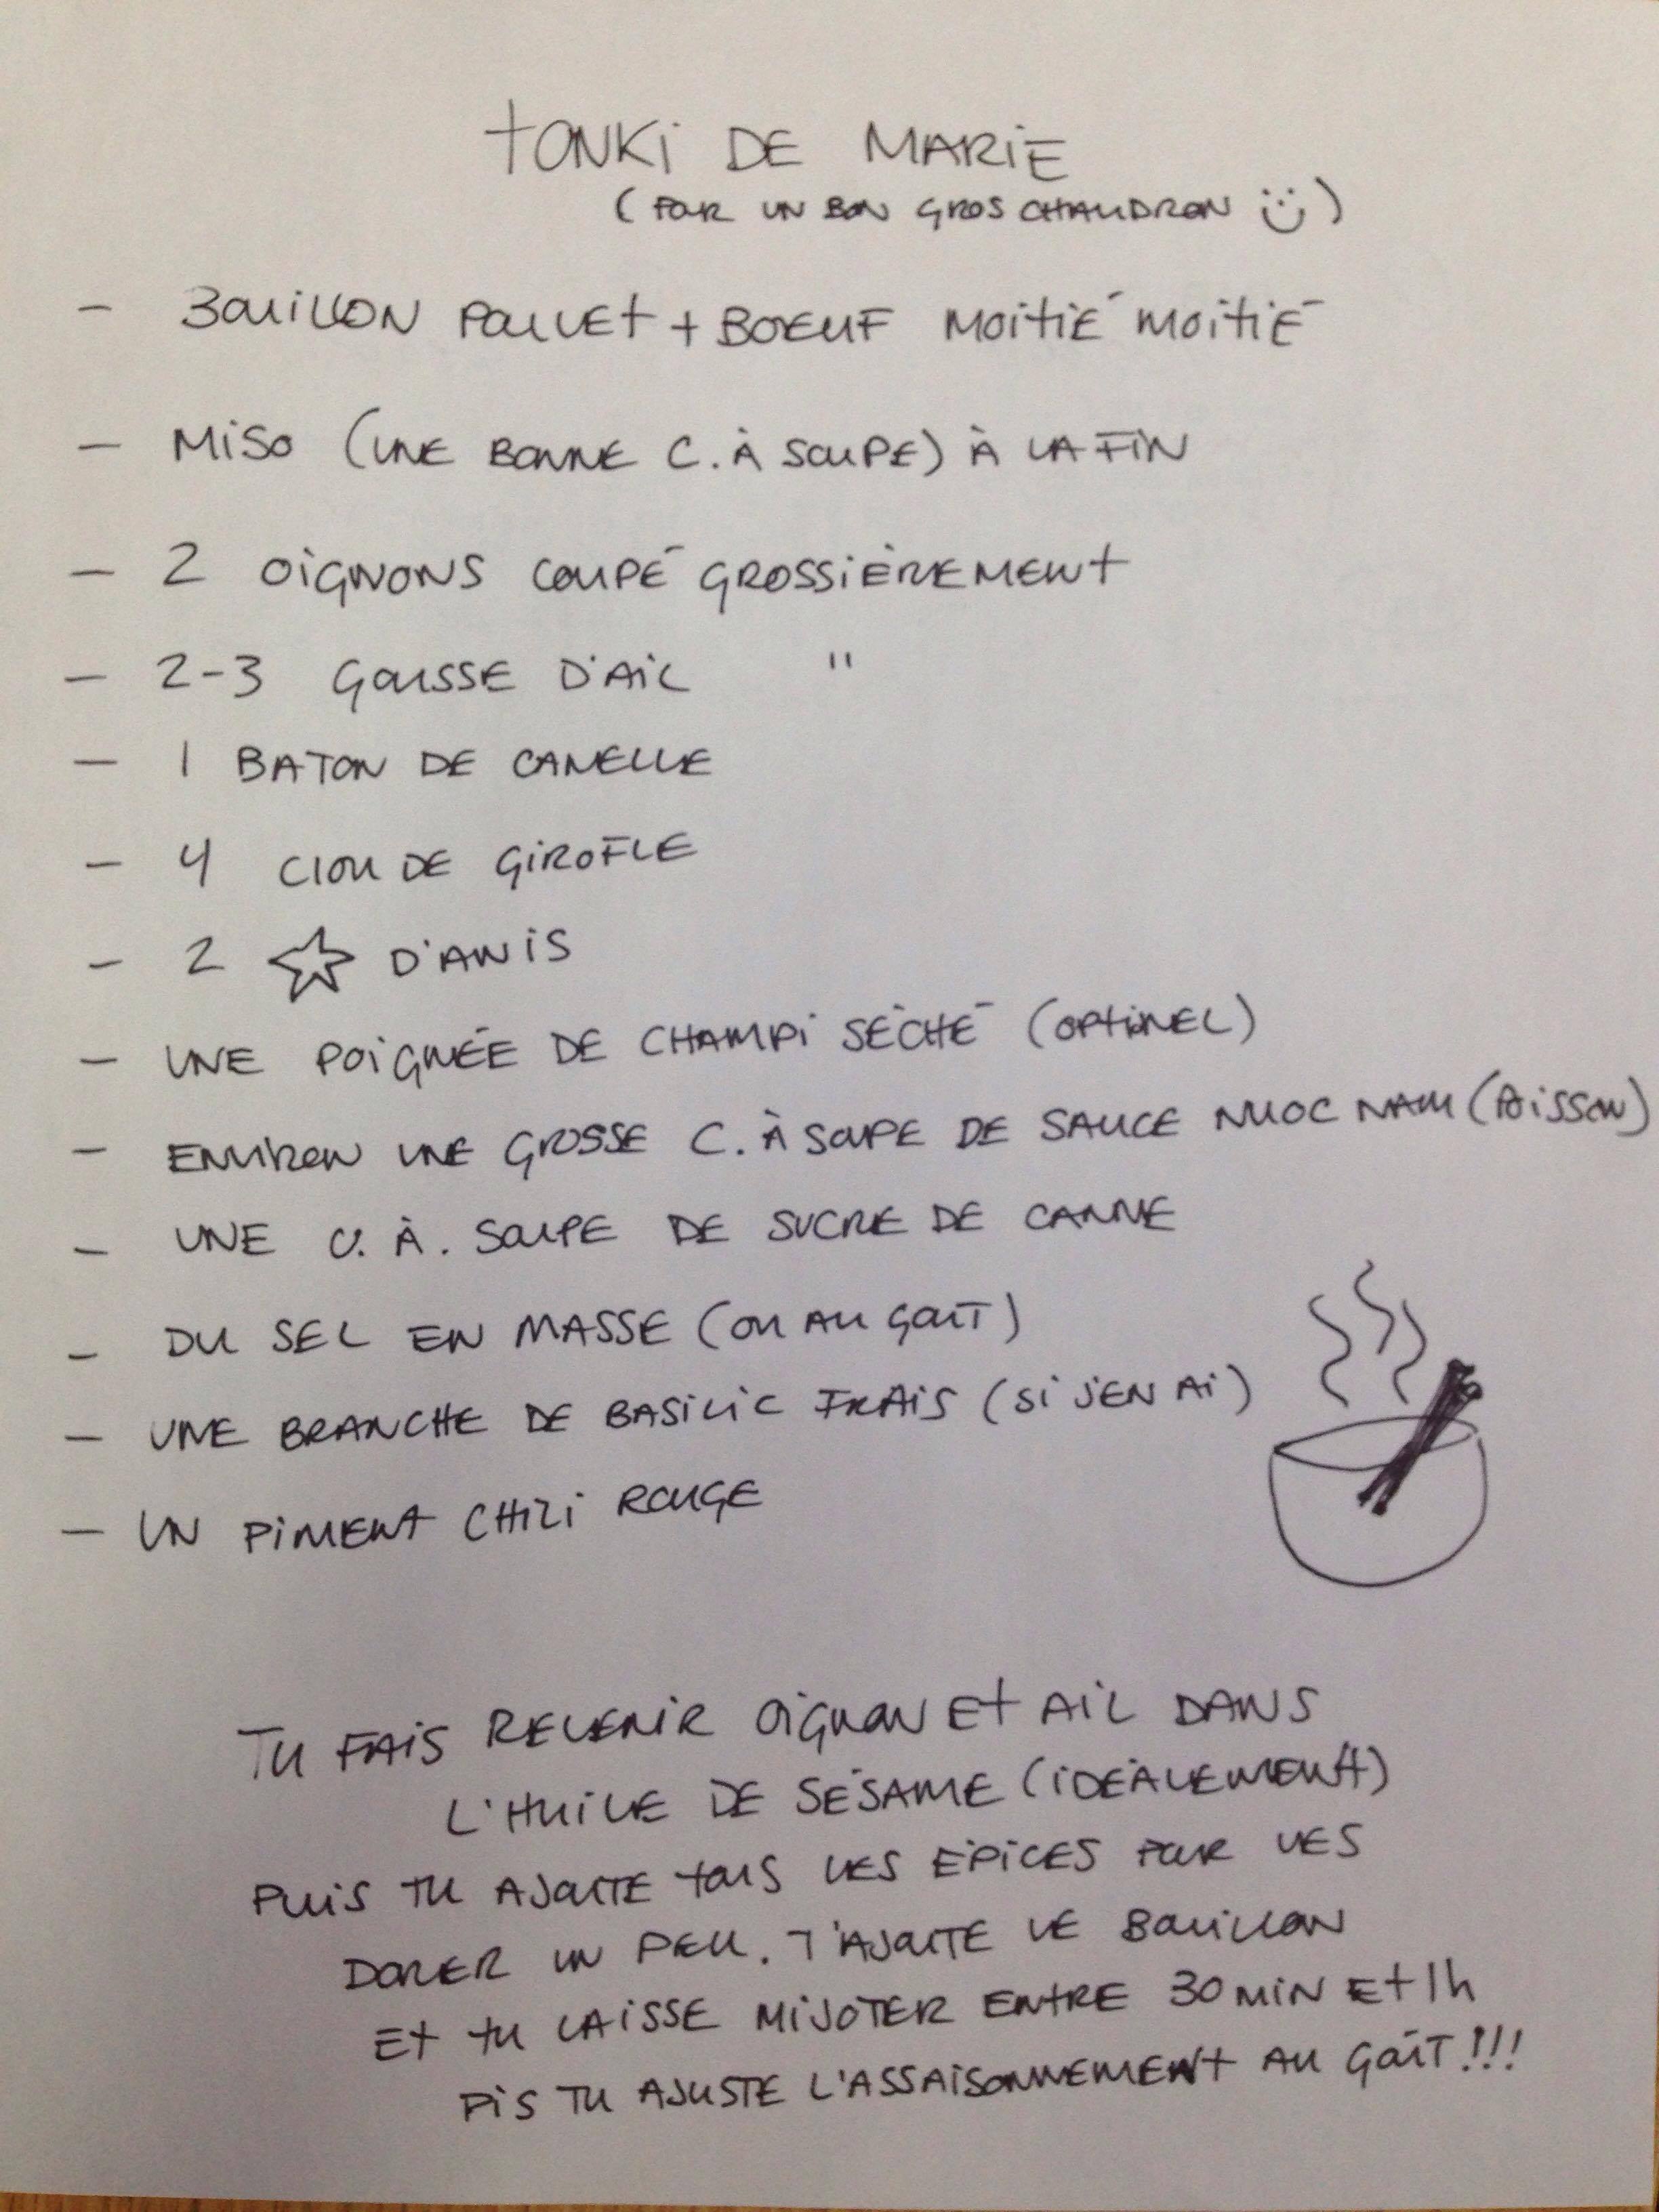 TONKI DE MARIE
(POUR UN BON GROS CHAUDRON Ü)
- BOUILLON POULLET + BOEUF MOITIÉ MOITIÉ
- MISO (UNE BONNE C. À SOUPE) À LA FIN
- 2 OIGNONS COUPÉ GROSSIÈREMENT
- 2-3 GOUSSE D'AIL "
- 1 BATON DE CANELLE
- 4 CLOU DE GIROFLE
- 2 ☆ D'ANIS
- UNE POIGNÉE DE CHAMPI SÉCHÉ (OPTIONEL)
- ENVIRON UNE GROSSE C. À SOUPE DE SAUCE NUOC NAM (POISSON)
- UNE C. À. SOUPE DE SUCRE DE CANNE
- DU SEL EN MASSE (OU AU GOUT)
- UNE BRANCHE DE BASILIC FRAIS (SI J'EN AI)
- UN PIMENT CHILI ROUGE
TU FAIS REVENIR OIGNON ET AIL DANS
L'HUILE DE SÉSAME (IDÉALEMENT)
PUIS TU AJOUTE TOUS LES ÉPICES POUR LES
DORER UN PEU. T'AJOUTE LE BOUILLON
ET TU LAISSE MIJOTER ENTRE 30 MIN ET 1h
PIS TU AJUSTE L'ASSAISONNEMENT AU GOÛT!!!